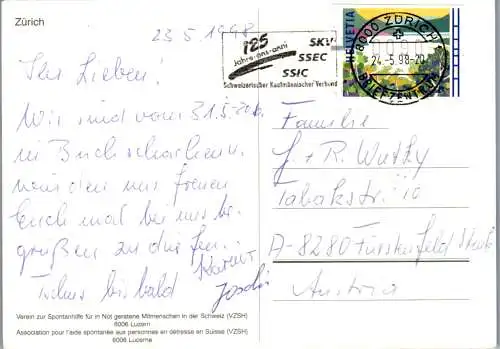 Zürich
23.5.1998
125
Jahre·ans·anni
SKV
SSEC
SSIC
Schweizerischer Kaufmännischer Verband
HELVETIA
0090
8000 ZÜRICH
24.-5.98-20
BRIEFZENTRUM
Ihr Lieben!
Wir sind vom 31.5-
in Buchschachen
würden uns freuen
Euch mal bei uns be-
grüßen zu dürfen.
Tschüs bis bald
Familie
J. + R. Wutky
Tabakstr. 10
A-8280 Fürstenfeld
Austria
Verein zur Spontanhilfe für in Not geratene Mitmenschen in der Schweiz (VZSH)
6006 Luzern
Association pour l'aide spontanée aux personnes en détresse en Suisse (VZSH)
6006 Lucerne